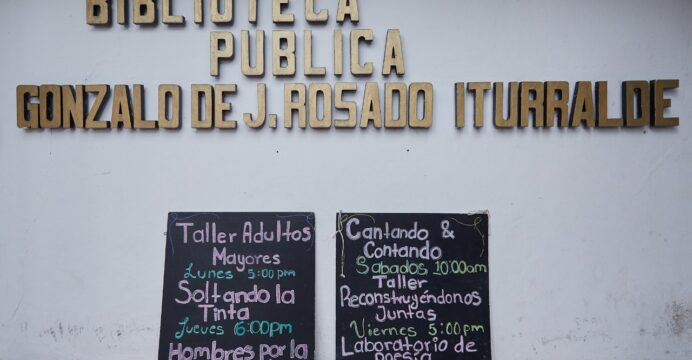 BIBLIOTECA
PUBLICA
GONZALO DE J. ROSADO ITURRALDE
Taller Adultos
Mayores
Lunes 5:00pm
Soltando la
Tinta
Jueves 6:00pm
Hombres por la
Cantando &
Contando
Sabados 10:00am
Taller
Reconstruyéndonos
Juntas
Viernes 5:00pm
Laboratorio de
Poesía